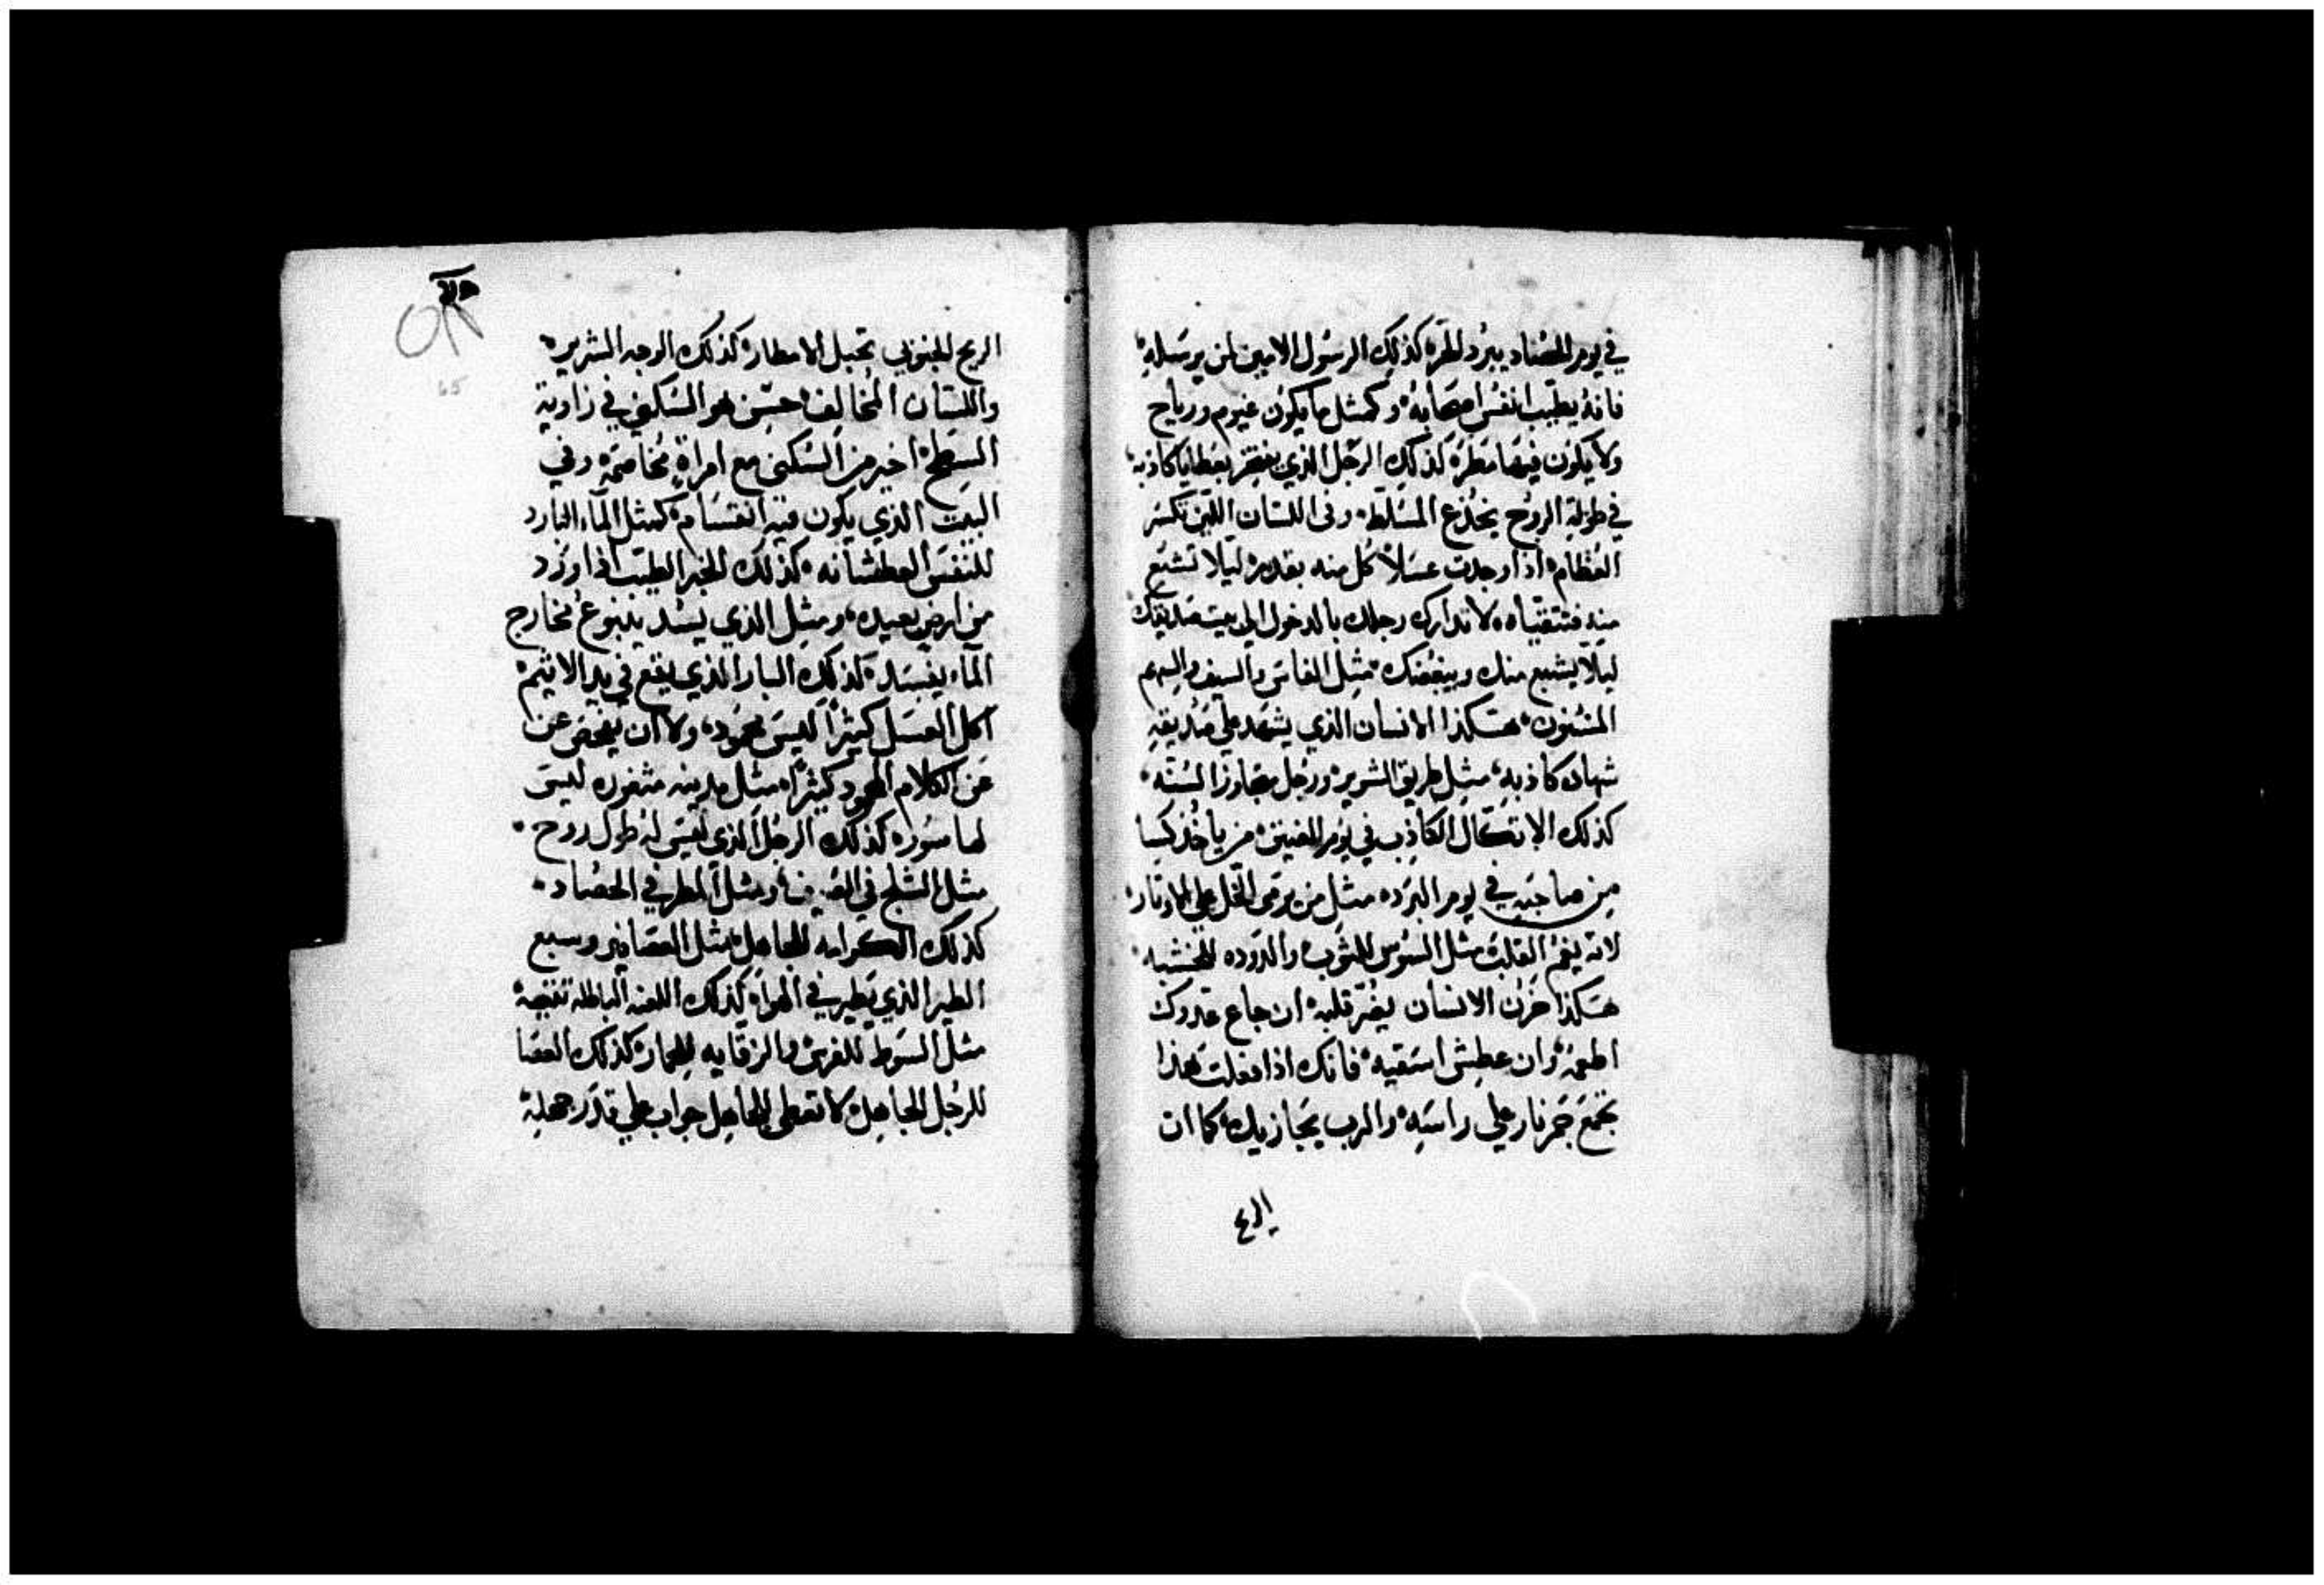 في يوم الحصاد يبرد الحر كذلك الرسول الامين لمن يرسله
فانه يطيب انفس اصحابه وكمثل ما يكون غيوم ورياح
ولا يكون فيها مطر كذلك الرجل الذي يفتخر بعطايا كاذبه
في طولة الروح يخدع المسلط وفي اللسان اللين تكسر
العظام اذا وجدت عسلا كل منه بقدر ليلا تشبع
منه فتتقياه لا تدارك رجلك بالدخول الي بيت صديقك
ليلا يشبع منك ويبغضك مثل الفاس والسيف والسهم
المسنون هكذا الانسان الذي يشهد علي صديقه
شهاده كاذبه مثل طريق الشرير ورجل متجاوز السنه
كذلك الاتكال الكاذب في يوم الضيق من ياخذ كسا
من صاحبه في يوم البرد مثل من يرمي الخل علي الاوتار
لانه يغم القلب مثل السوس للثوب والدوده للخشبه
هكذا حزن الانسان يضر قلبه ان جاع عدوك
اطعمه وان عطش اسقيه فانك اذا فعلت هذا
تجمع جمر نار علي راسه والرب يجازيك كما ان
الريح
الريح الجنوبي تحبل الامطار كذلك الوجه الشرير
واللسان المخالف حسن هو السكني في زاوية
السطح اخير من السكني مع امراة مخاصمه وفي
البيت الذي يكون فيه انقسام كمثل الماء البارد
للنفس العطشانه كذلك الخبر الطيب اذا ورد
من ارض بعيده ومثل الذي يسد ينبوع مخارج
الماء يفسد كذلك البار الذي يقع في يد الاثيم
اكل العسل كثيرا ليس محمود ولا ان يفحص عن
عن الكلام المحمود كثيرا مثل مدينه مثغوره ليس
لها سور كذلك الرجل الذي ليس له طول روح
مثل الثلج في الصيف ومثل المطر في الحصاد
كذلك الكرامه للجاهل مثل العصافير وسبع
الطير الذي تطير في الهواء كذلك اللعنه الباطله
مثل السوط للفرس والزقايه للحمار كذلك العصا
للرجل الجاهل لا تعطي الجاهل جواب علي قدر جهله
65